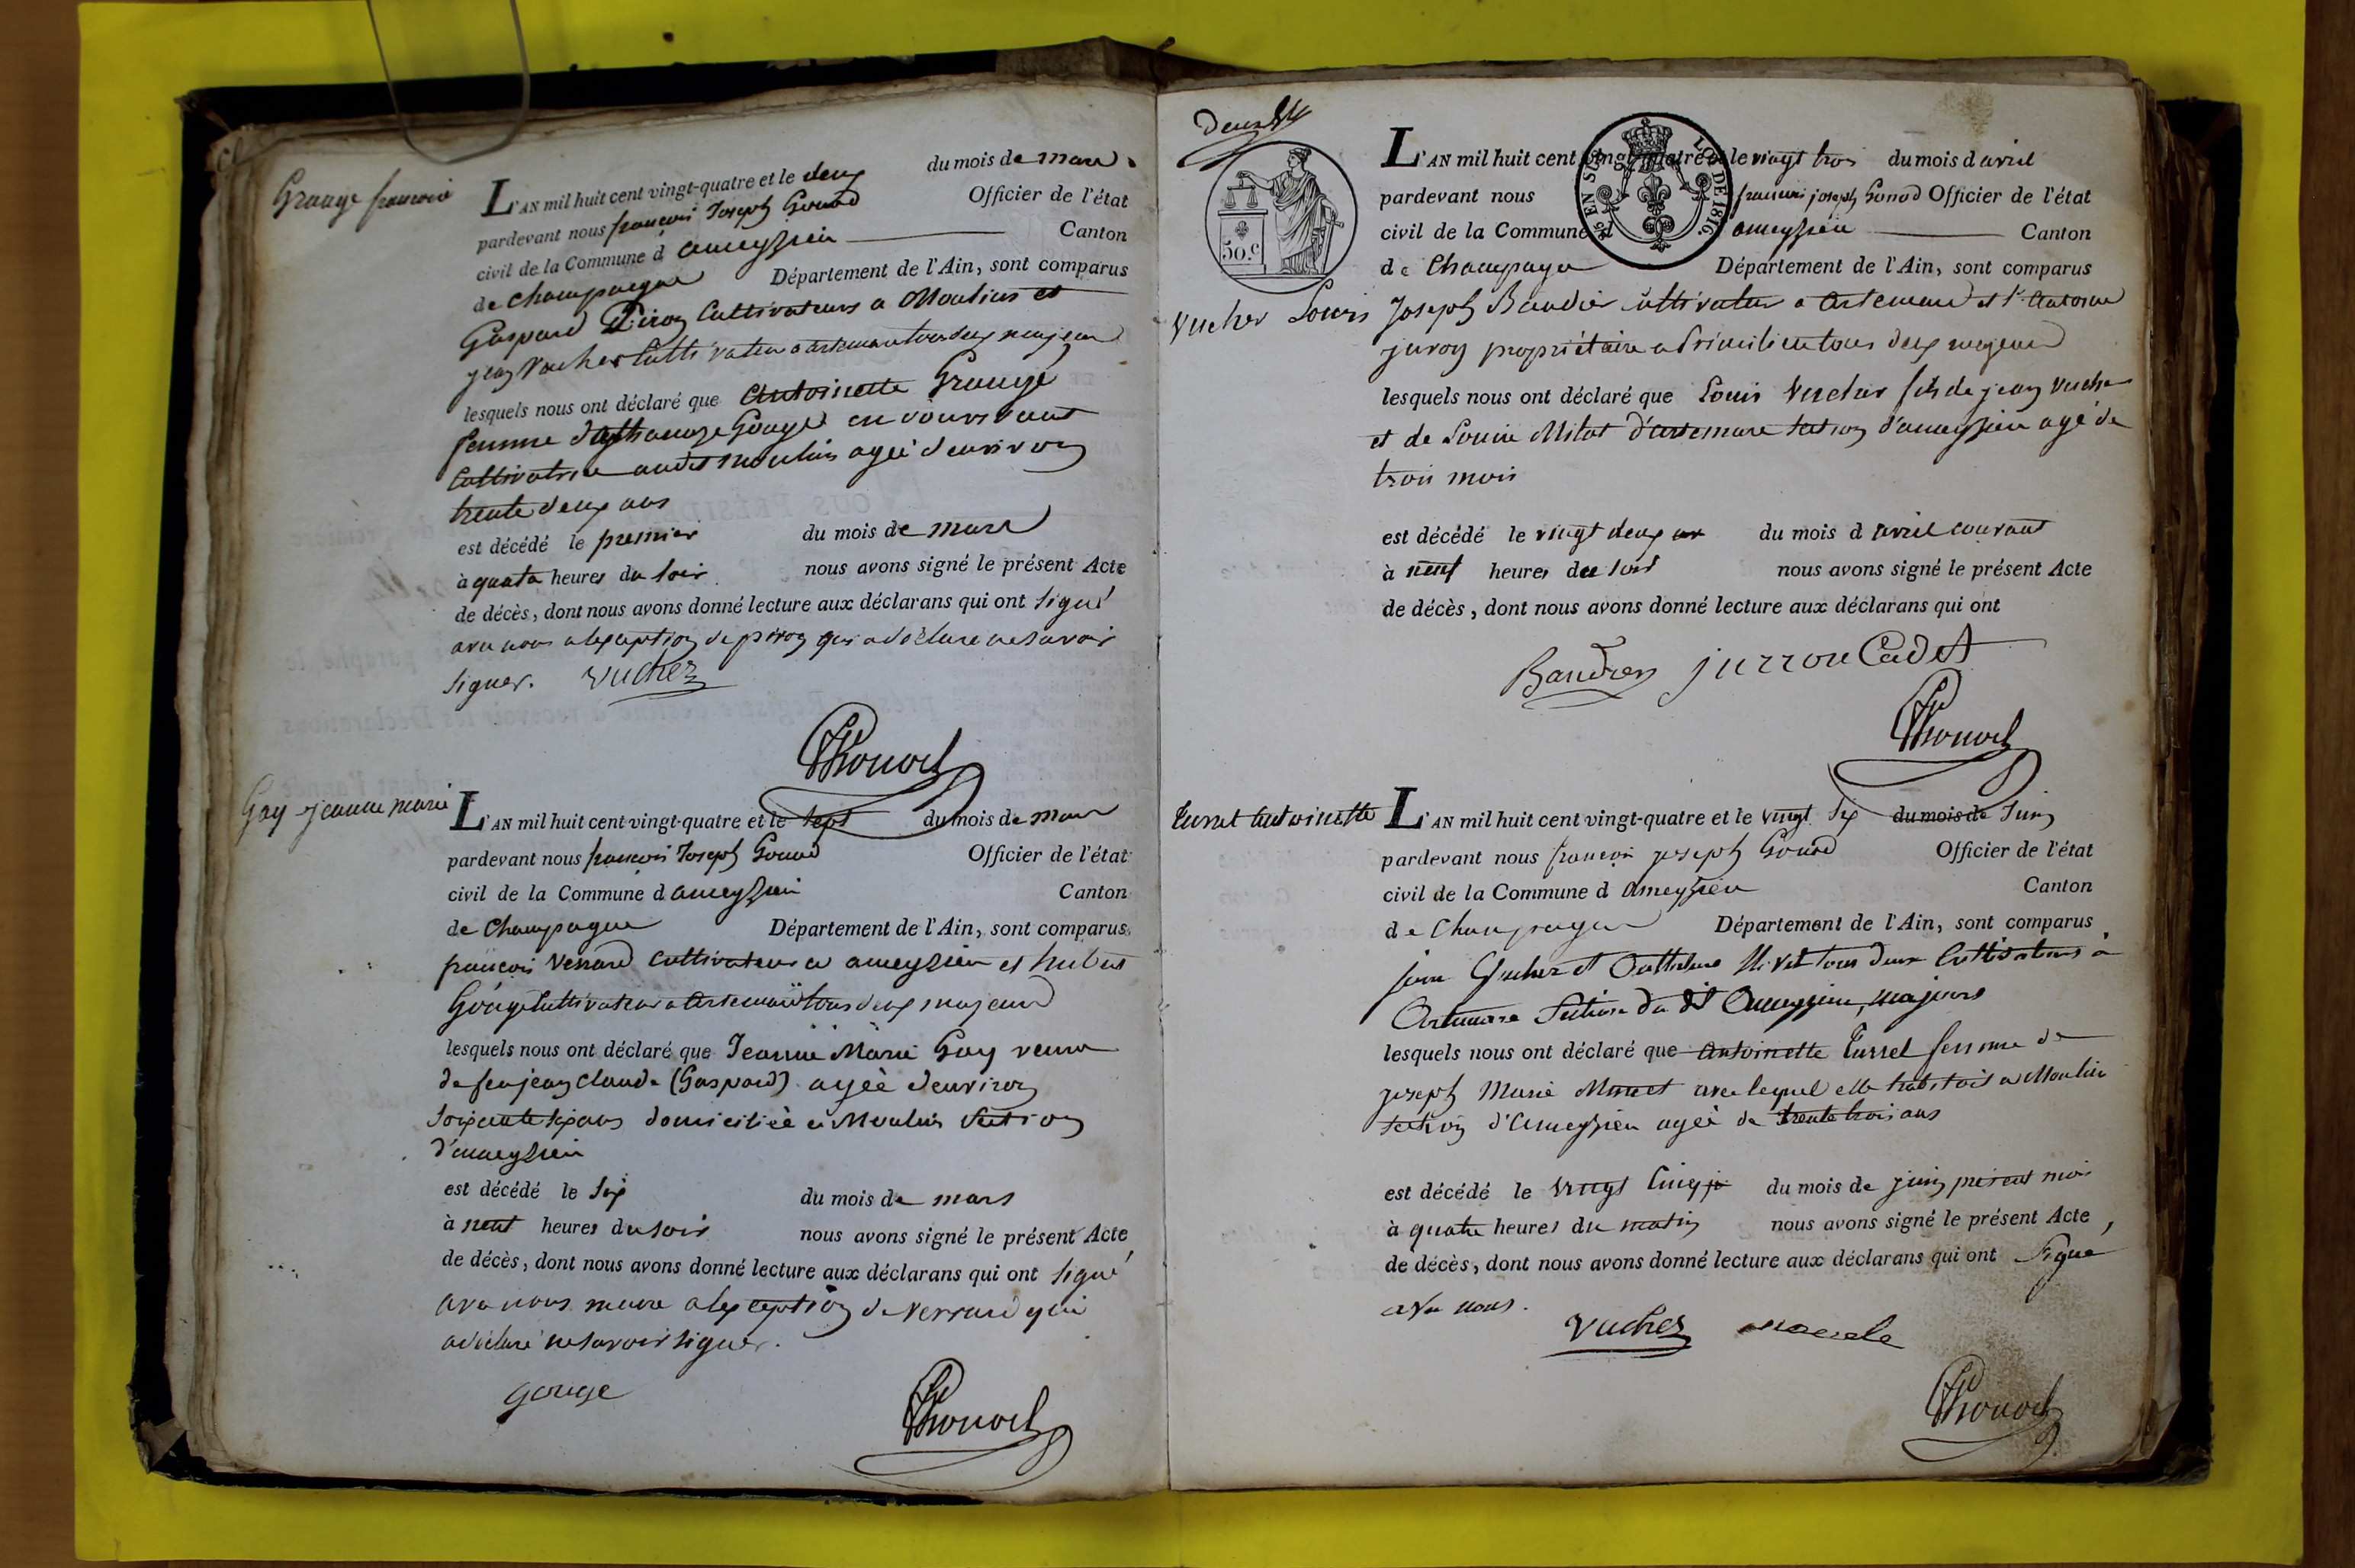 Grange françoise
L'AN mil huit cent vingt-quatre et le deux du mois de mars
pardevant nous françois Joseph Gonod Officier de l'état
civil de la Commune d ameyzieu Canton
de champagne Département de l'Ain, sont comparus
Gaspard Piron Cultivateurs a Moulins et
jean Vucher Cultivateur a artemare tous deux majeurs
lesquels nous ont déclaré que Antoinette Grange
femme d Gouge en vivant
Cultivatrice audit moulins agée d'environ
trente deux ans
est décédé le premier du mois de mars
à quatre heures du soir nous avons signé le présent Acte
de décès, dont nous avons donné lecture aux déclarans qui ont signé
avec nous a lexception de piron qui a déclaré ne savoir
signer. Vucher
Gonod
Gay jeanne marie
L'AN mil huit cent vingt-quatre et le sept du mois de mars
pardevant nous françois Joseph Gonod Officier de l'état
civil de la Commune d ameyzieu Canton
de Champagne Département de l'Ain, sont comparus
françois Verrard Cultivateur a ameyzieu et
Gouge Cultivateur a Artemare tous deux majeurs
lesquels nous ont déclaré que Jeanne Marie Gay veuve
de feu jean Claude (Gaspard) agée d'environ
soixante six ans domiciliée a Moulins Section
d'ameyzieu
est décédé le six du mois de mars
à neuf heures du soir nous avons signé le présent Acte
de décès, dont nous avons donné lecture aux déclarans qui ont signé
avec nous maire a lexception de Verrard qui
a déclaré ne savoir signer.
gouge
Gonod
Deux
50 c
EN SUS
LOI DE 1816
L'AN mil huit cent vingt-quatre et le vingt trois du mois d avril
pardevant nous françois joseph Gonod Officier de l'état
civil de la Commune d ameyzieu Canton
de Champagne Département de l'Ain, sont comparus
Vucher Louis
Joseph Baudier Cultivateur a Artemare et Antoine
juron propriétaire a tous deux majeurs
lesquels nous ont déclaré que Louis Vucher fils de jean Vucher
et de Louise Milat d'artemare section d'ameyzieu agé de
trois mois
est décédé le vingt deux du mois d avril courant
à neuf heures du soir nous avons signé le présent Acte
de décès, dont nous avons donné lecture aux déclarans qui ont
Baudier jurron Cadet
Gonod
Turrel Antoinette
L'AN mil huit cent vingt-quatre et le vingt six du mois de Juin
pardevant nous françois joseph Gonod Officier de l'état
civil de la Commune d ameyzieu Canton
de Champagne Département de l'Ain, sont comparus
jean Vucher et tous deux Cultivateurs à
Artemare Section du dit Ameyzieu, majeurs
lesquels nous ont déclaré que Antoinette Turrel femme de
joseph Marie avec lequel elle habitait a Moulin
section d'Ameyzieu agée de trente trois ans
est décédé le vingt Cinq du mois de juin présent mois
à quatre heures du matin nous avons signé le présent Acte
de décès, dont nous avons donné lecture aux déclarans qui ont signé
avec nous.
Vucher
Gonod